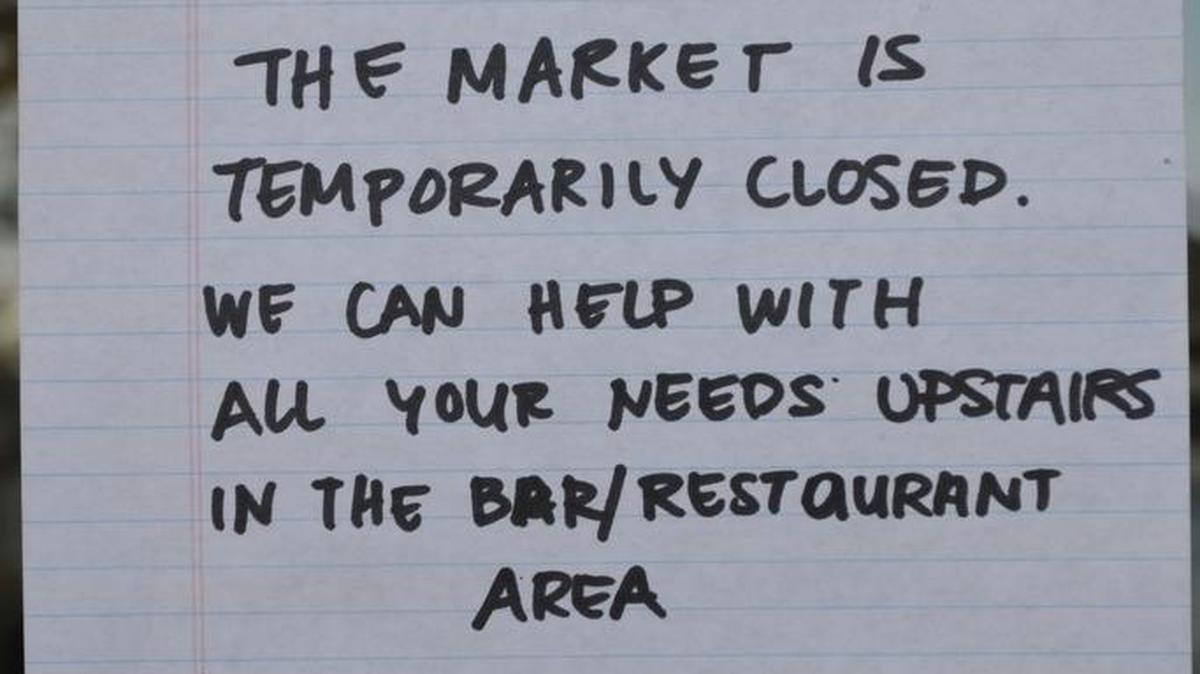 THE MARKET IS
TEMPORARILY CLOSED.
WE CAN HELP WITH
ALL YOUR NEEDS UPSTAIRS
IN THE BAR/RESTAURANT
AREA